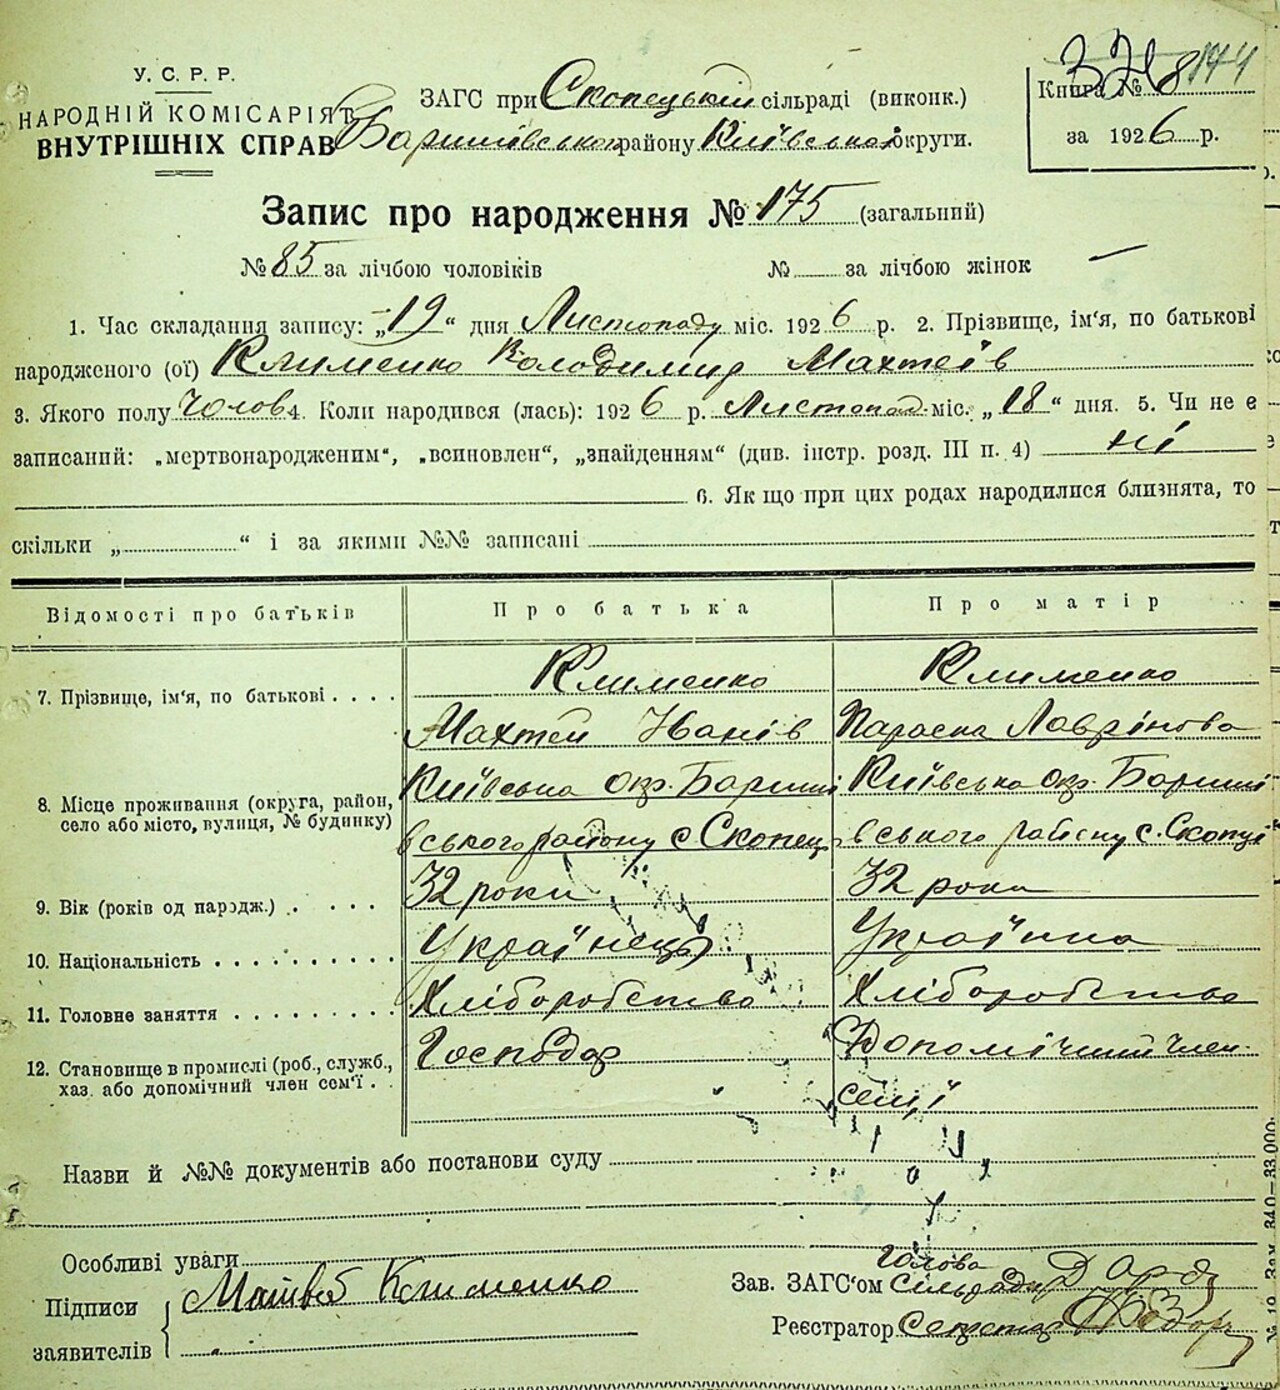 У. С. Р. Р.
НАРОДНІЙ КОМІСАРІЯТ
ВНУТРІШНІХ СПРАВ
ЗАГС при Скопецькій сільраді (виконк.)
Баришівського району Київської округи.
Книга №
за 1926 р.
144
Запис про народження № 175 (загальний)
№ 85 за лічбою чоловіків № за лічбою жінок —
1. Час складання запису: „19“ дня Листопаду міс. 1926 р. 2. Прізвище, ім‘я, по батькові
народженого (ої) Клименко Володимир Махтеїв
3. Якого полу Чолов 4. Коли народився (лась): 1926 р. Листопад. міс. „18“ дня. 5. Чи не є
записаний: „мертвонародженим“, „всиновлен“, „знайденням“ (див. інстр. розд. III п. 4) ні
6. Як що при цих родах народилися близнята, то
скільки „ “ і за якими №№ записані
Відомості про батьків Про батька Про матір
7. Прізвище, ім‘я, по батькові . . . . Клименко Клименко
Махтей Иванів Параска Лаврінова
8. Місце проживання (округа, район, село або місто, вулиця, № будинку) Київська окр. Бариші Київська окр. Бариші
вського району с Скопец вського району с. Скопці
9. Вік (років од народж.) . . . . 32 роки 32 роки
10. Національність . . . . . . . . . . Українець Українка
11. Головне заняття . . . . . . . . . Хліборобство Хліборобство
12. Становище в промислі (роб., служб., хаз. або допомічний член сем‘ї . . Господар Допомічний член
семї
Назви й №№ документів або постанови суду
Особливі уваги
Підписи заявителів Матвей Клименко
Голова
Зав. ЗАГС‘ом Сільради
Реєстратор Секретар